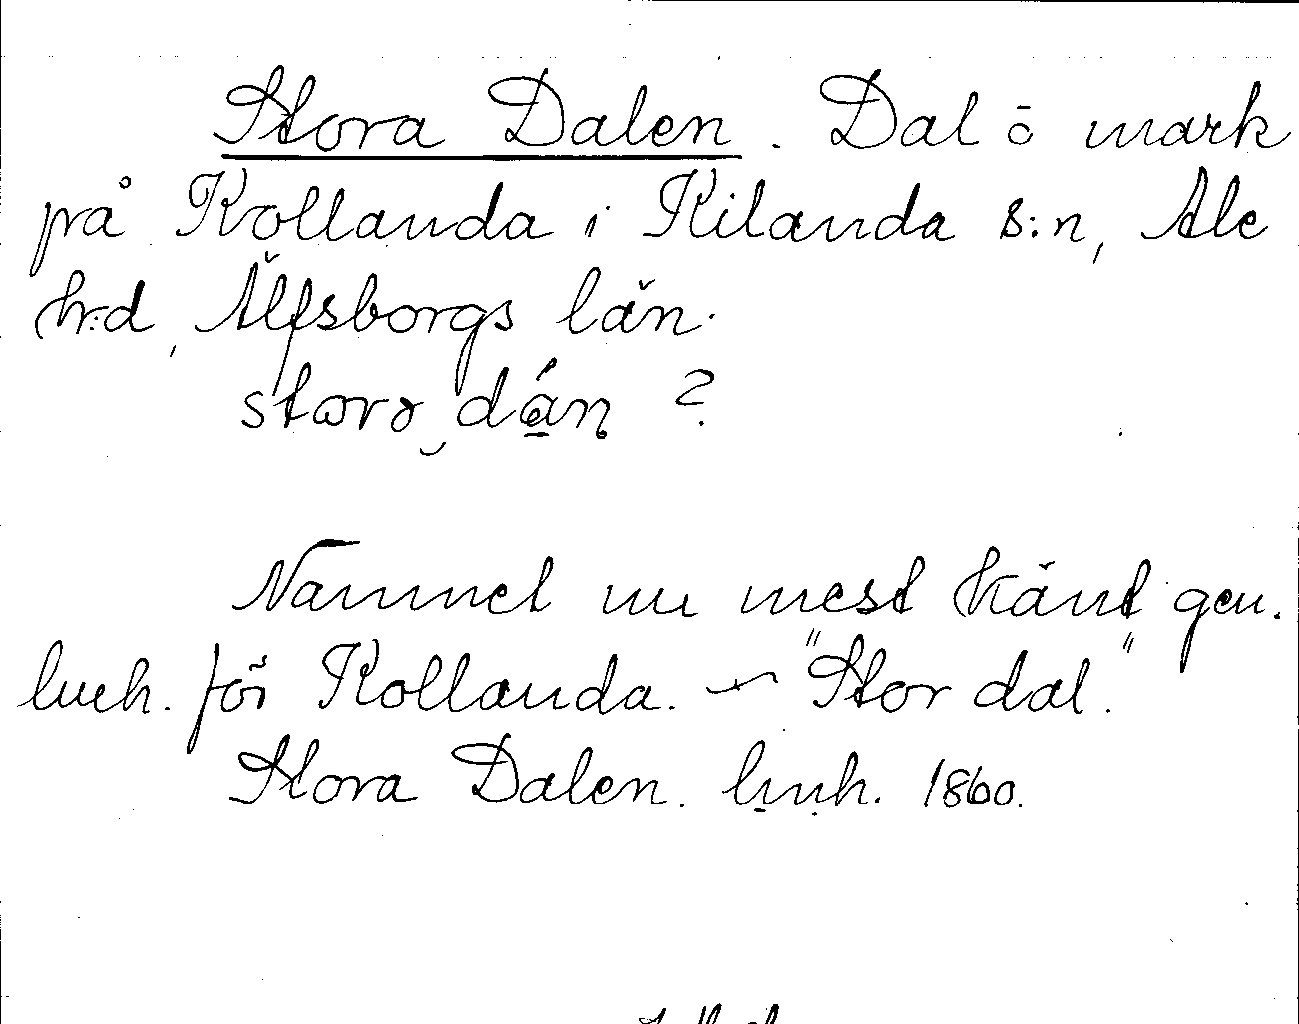 Stora Dalen. Dal o mark
på Kollanda i Kilanda s:n, Ale
h:d, Älfsborgs län.
Namnet nu mest känt gen.
luch. för Kollanda. "Stor dal."
Stora Dalen. lmh. 1860.